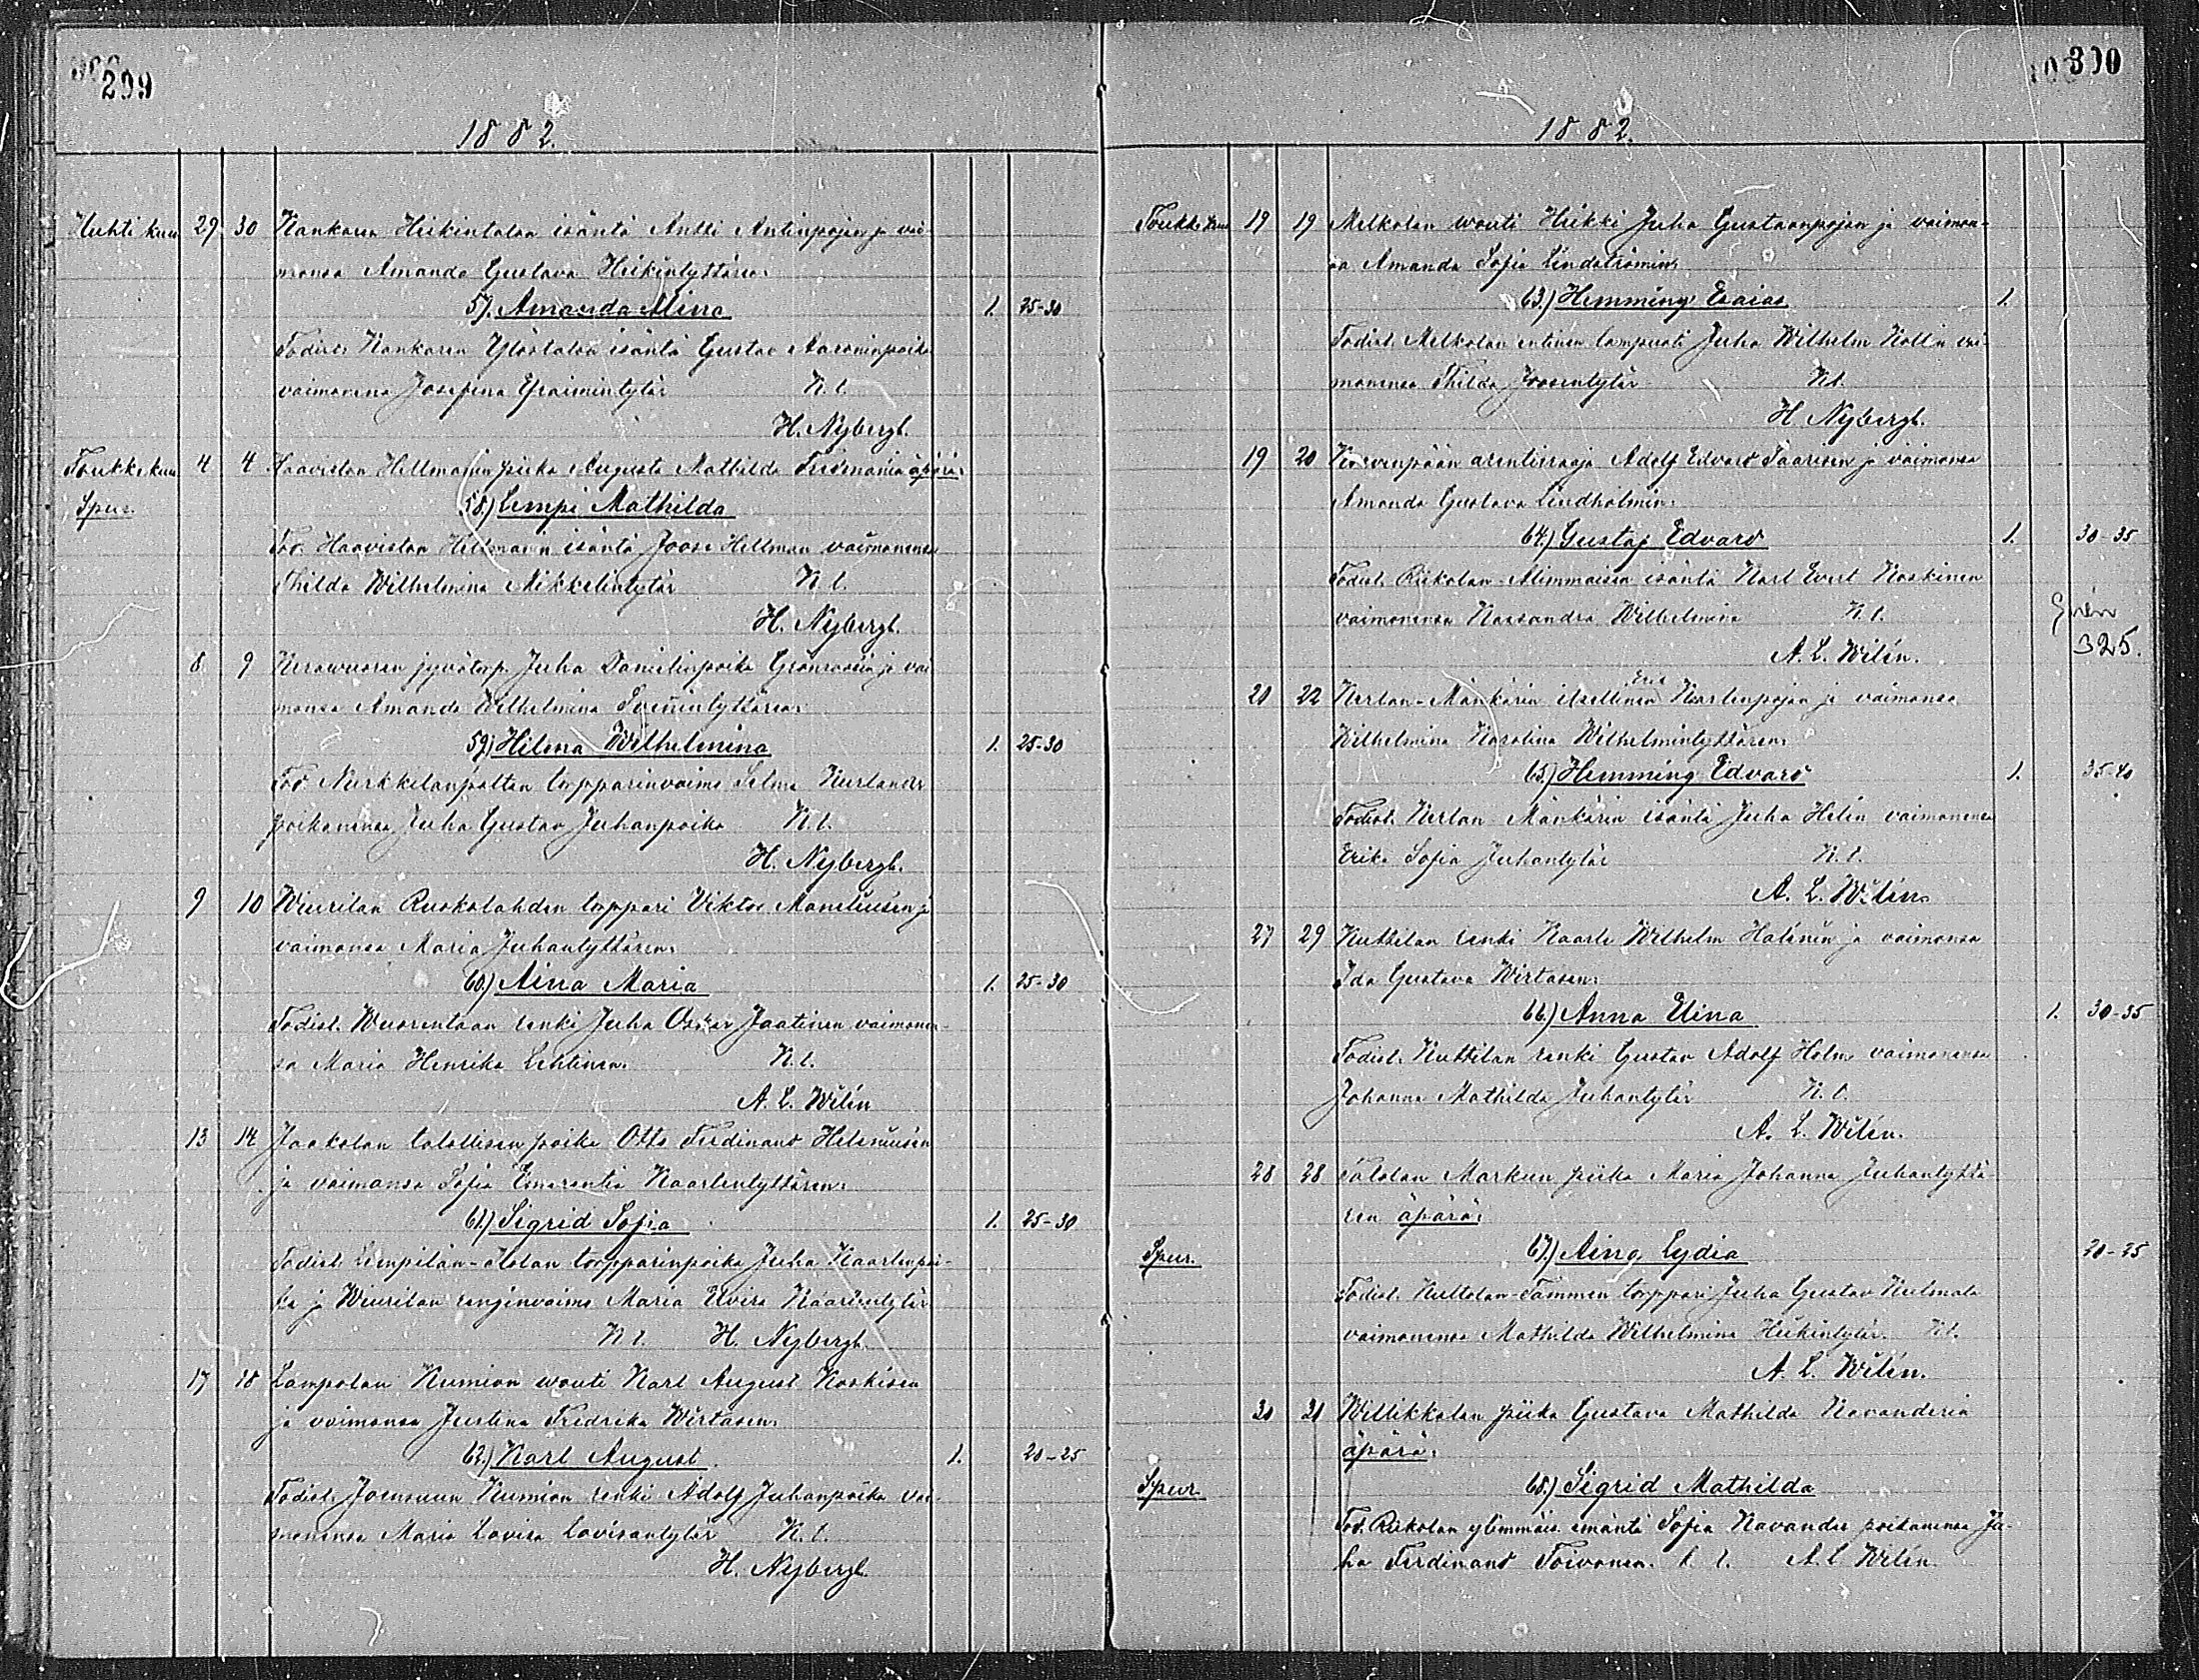 299
1882.
Huhtikuu 29 30 Kankaren Heikintalon isäntä Antti Antinpojan ja vai-
monsa Amanda Gustava Heikintyttären:
57. Amanda Mina 1. 25-30
Todist. Kankaren Ylöstalon isäntä Gustav Aaroninpoika
vaimonensa Josefina Efraimintytär K. l.
H. Nybergh.
Toukokuu 4 4 Haaviston Hellmanin piika Augusta Mathilda Fridmanin äpärä:
Spur. 58.) Lempi Mathilda
Tod. Haaviston Hellmanin isäntä Joose Hellman vaimonensa
Thilda Wilhelmina Mikkelintytär K. l.
H. Nybergh.
8 9 Juha Danielinpoika Grönroosin ja vai
monsa Amanda Wilhelmina
59.) Hilma Wilhelmina 1. 25-30
Tod torpparinvaimo Selma
poikanensa Juha Gustav Juhanpoika K. l.
H. Nybergh.
9 10 Wiurilan Ruokolahden torppari Viktor Maneliusen ja
vaimonsa Maria Juhantyttären:
60.) Aina Maria 1. 25-30
Todist. Wuorentaan renki Juha Oskar Jaatinen vaimonen-
sa Maria Henrika Lehtinen. K. l.
A. L. Wilén
13 14 Jaakolan talollisen poika Otto Ferdinand Heleniusen
ja vaimonsa Sofia Emerentia Kaarlentyttären:
61.) Sigrid Sofia 1. 25-30
Todist. torpparinpoika Juha Kaarlenpoi-
ka ja Wiurilan renginvaimo Maria Elvira Kaarlentytär
K. l. H. Nybergh.
17 18 Lampolan Numion wouti Karl August Koskisen
ja vaimonsa Justina Fredrika Wirtasen:
62.) Karl August. 1. 20-25
Todist. Joensuun Numion renki Adolf Juhanpoika vai-
monensa Maria Lovisa Lovisantytär K. l.
H. Nybergh.
300
1882.
Toukokuu 19 19 Melkolan wouti Heikki Juha Gustavinpojan ja vaimon-
sa Amanda Sofia Lindströmin:
63.) Hemming Esaias 1.
Todist. Melkolan entinen lampuoti Juha Wilhelm vai
monensa Thilda Joosentytär K. l.
H. Nybergh.
19 20 Korvenpään arentiraaja Adolf Edvard Saarisen ja vaimonsa
Amanda Gustava Lindholmin:
64.) Gustaf Edvard 1. 30-35
Todist. Riikolan Alimmaisen isäntä Karl Evert Koskinen
vaimonensa Kassandra Wilhelmina K. l.
325.
A. L. Wilén.
Erik
20 22 Kerlan-Mänkärin itsellinen Kaarlenpojan ja vaimonsa
Wilhelmina Karolina Wilhelmintyttären:
65.) Hemming Edvard 1. 35-40
Todist. Kerlan Mänkärin isäntä Juha Helin vaimonensa
Erika Sofia Juhantytär K. l.
A. L. Wilén.
27 29 Kuttilan renki Kaarle Wilhelm Halenin ja vaimonsa
Ida Gustava Wirtasen:
66.) Anna Elina 1. 30-35
Todist. Kuttilan renki Gustav Adolf Holm vaimonensa
Johanna Mathilda Juhantytär K. l.
A. L. Wilén.
28 28 Markun piika Maria Johanna Juhantyttä-
ren äpärä:
Spur. 67.) Aina Lydia 20-25
Todist. torppari Juha Gustav Kulmala
vaimonensa Mathilda Wilhelmina Heikintytär. K. l.
A. L. Wilén.
30 31 Willikkalan piika Gustava Mathilda Navanderin
äpärä:
Spur. 68.) Sigrid Mathilda
Tod. Riikolan ylimmäis. emäntä Sofia Navander poikanensa Ju-
ha Ferdinand Toivonen. k. l. A. L. Wilén